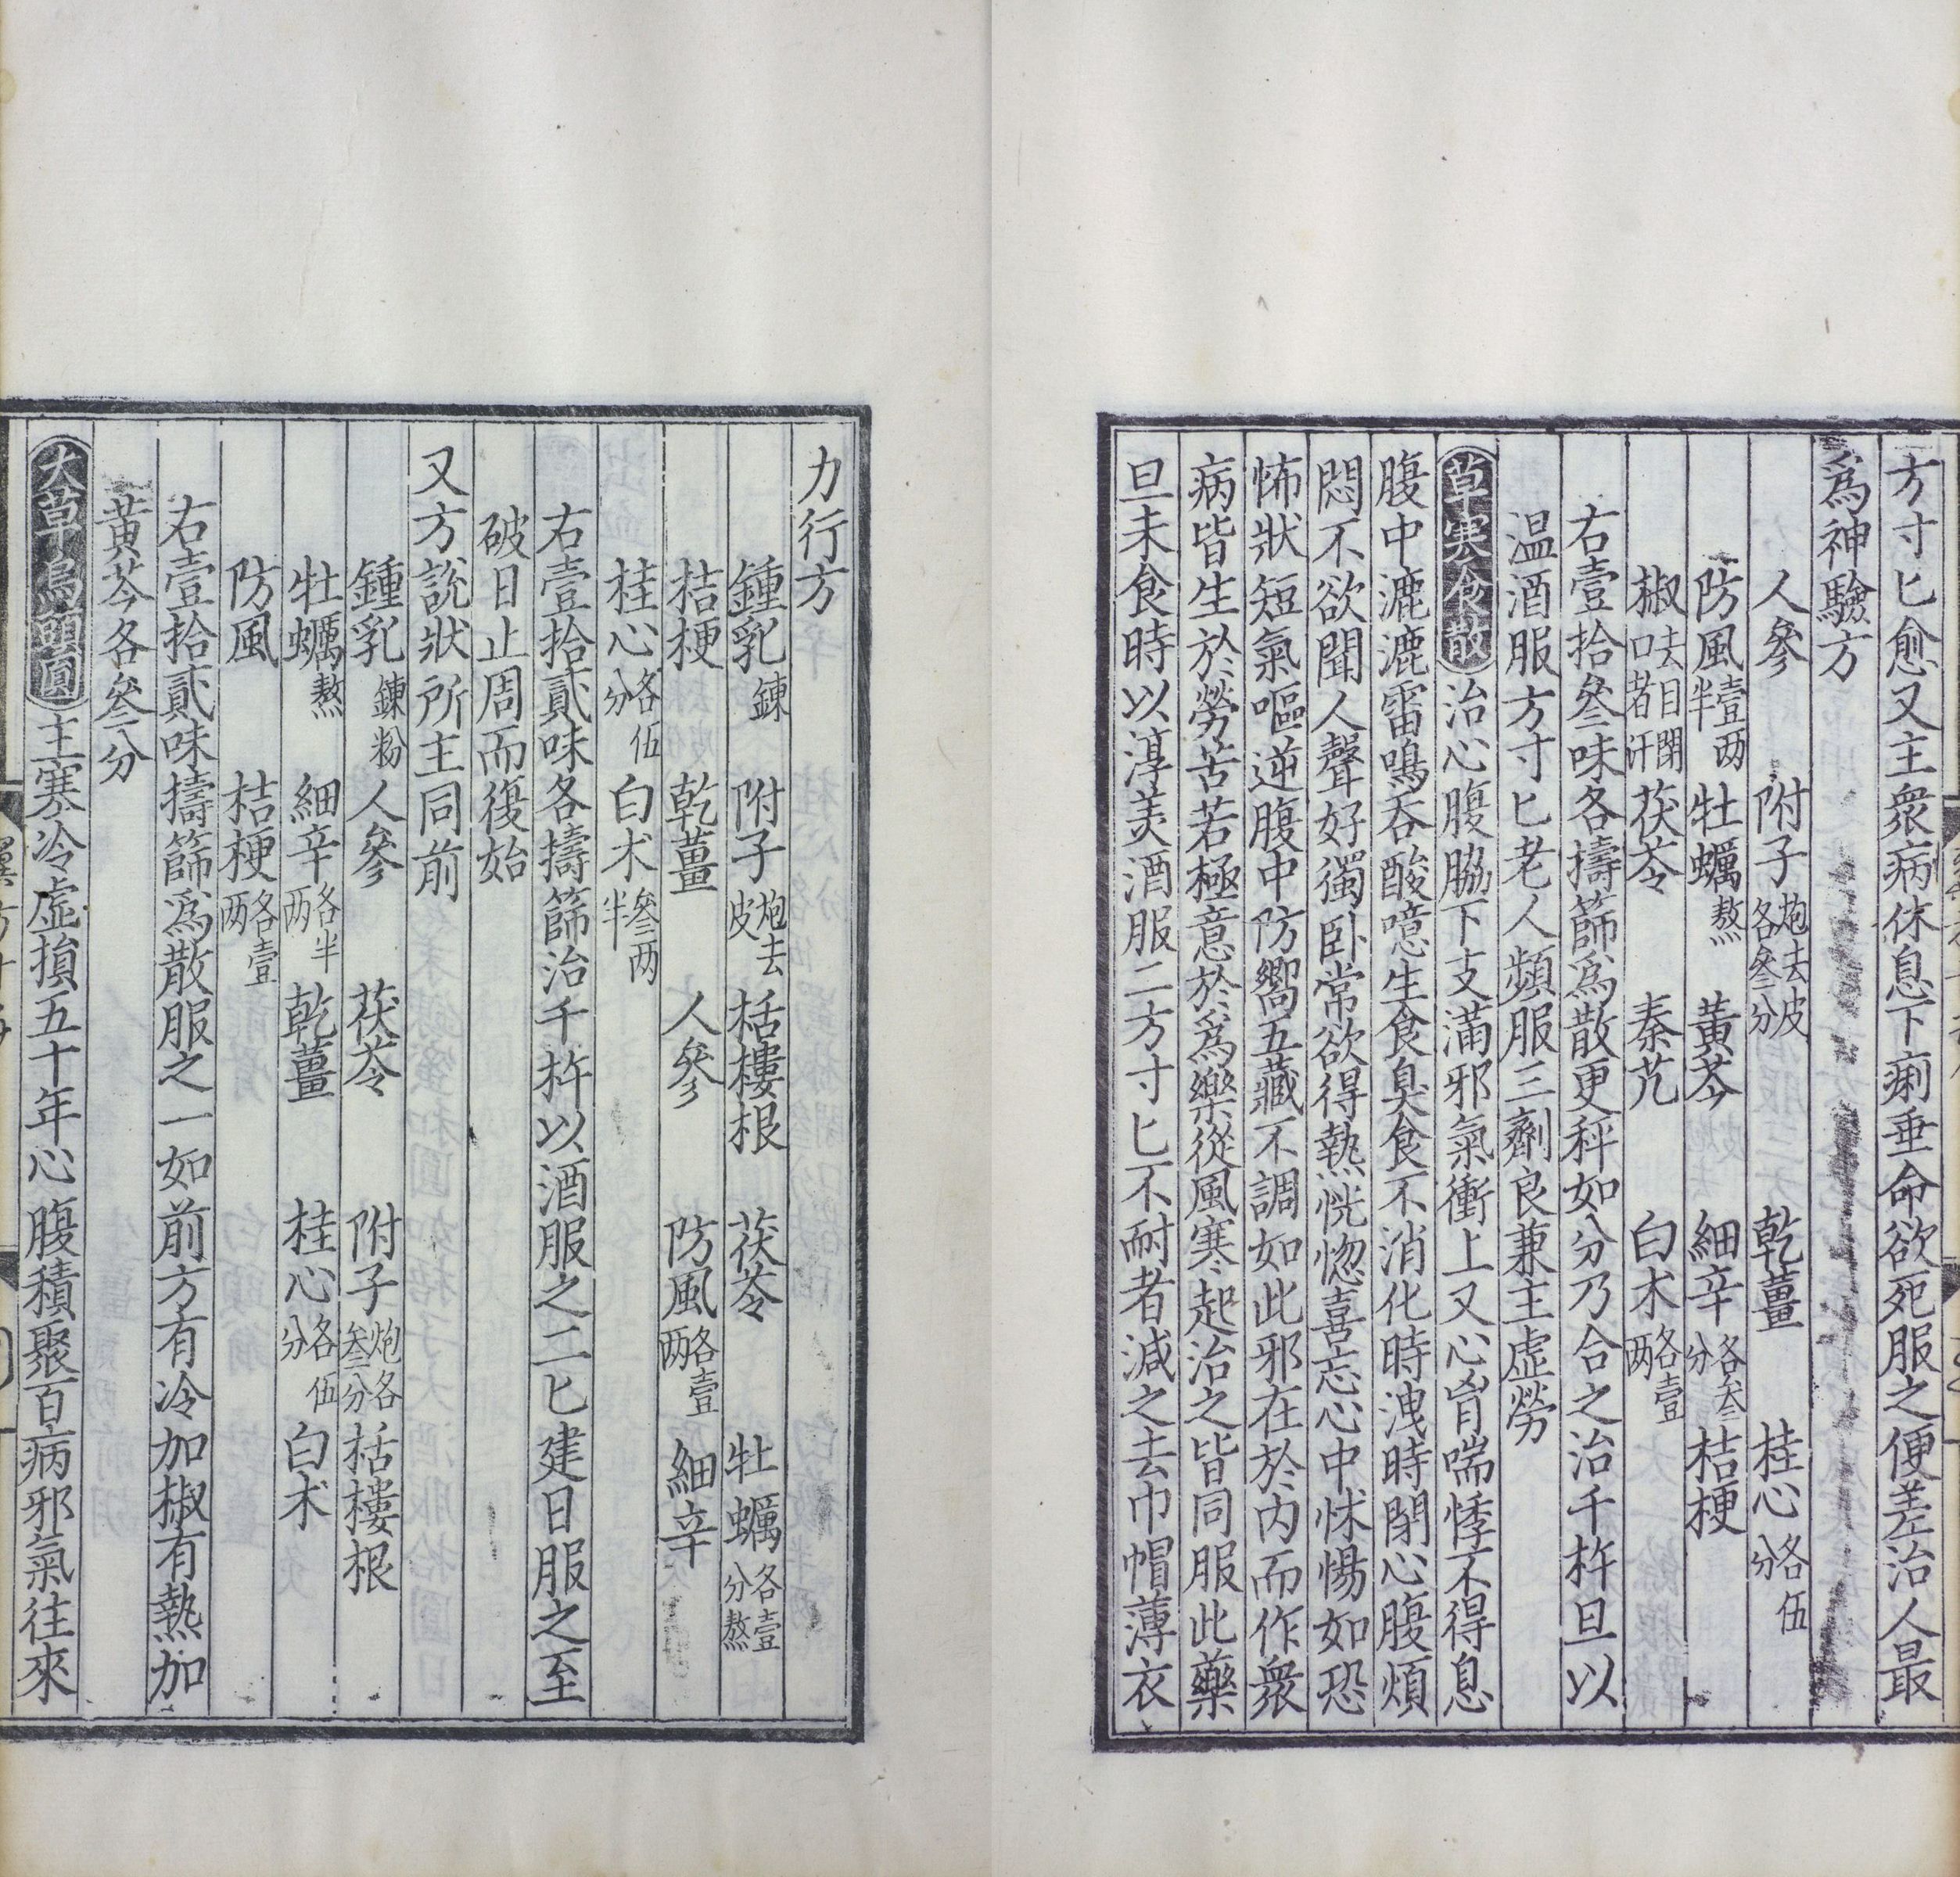 方寸匕愈又主衆病休息下痢垂命欲死服之便差治人最
爲神驗方
人參 附子炮去皮各叄分 乾薑 桂心各伍分
防風壹两半 牡蠣熬 黃芩 細辛各叄分 桔梗
椒去目閉口者汗 茯苓 秦艽 白术各壹两
右壹拾叄味各擣篩爲散更秤如分乃合之治千杵旦以
温酒服方寸匕老人頻服三劑良兼主虛勞
草寒食散治心腹脇下支滿邪氣衝上又心胷喘悸不得息
腹中漉漉雷鳴吞酸噫生食臭食不消化時洩時閉心腹煩
悶不欲聞人聲好獨卧常欲得熱恍惚喜忘心中怵惕如恐
怖狀短氣嘔逆腹中防嚮五藏不調如此邪在於内而作衆
病皆生於勞苦若極意於爲樂從風寒起治之皆同服此藥
旦未食時以淳美酒服二方寸匕不耐者減之去巾帽薄衣
力行方
鍾乳鍊 附子炮去皮 栝樓根 茯苓 牡蠣各壹分熬
桔梗 乾薑 人參 防風各壹两 細辛
桂心各伍分 白术叄两半
右壹拾貳味各擣篩治千杵以酒服之二匕建日服之至
破日止周而復始
又方說狀所主同前
鍾乳鍊粉 人參 茯苓 附子炮各叄分 栝樓根
牡蠣熬 細辛各半两 乾薑 桂心各伍分 白术
防風 桔梗各壹两
右壹拾貳味擣篩爲散服之一如前方有冷加椒有熱加
黄芩各叄分
大草烏頭圓主寒冷虛損五十年心腹積聚百病邪氣往來